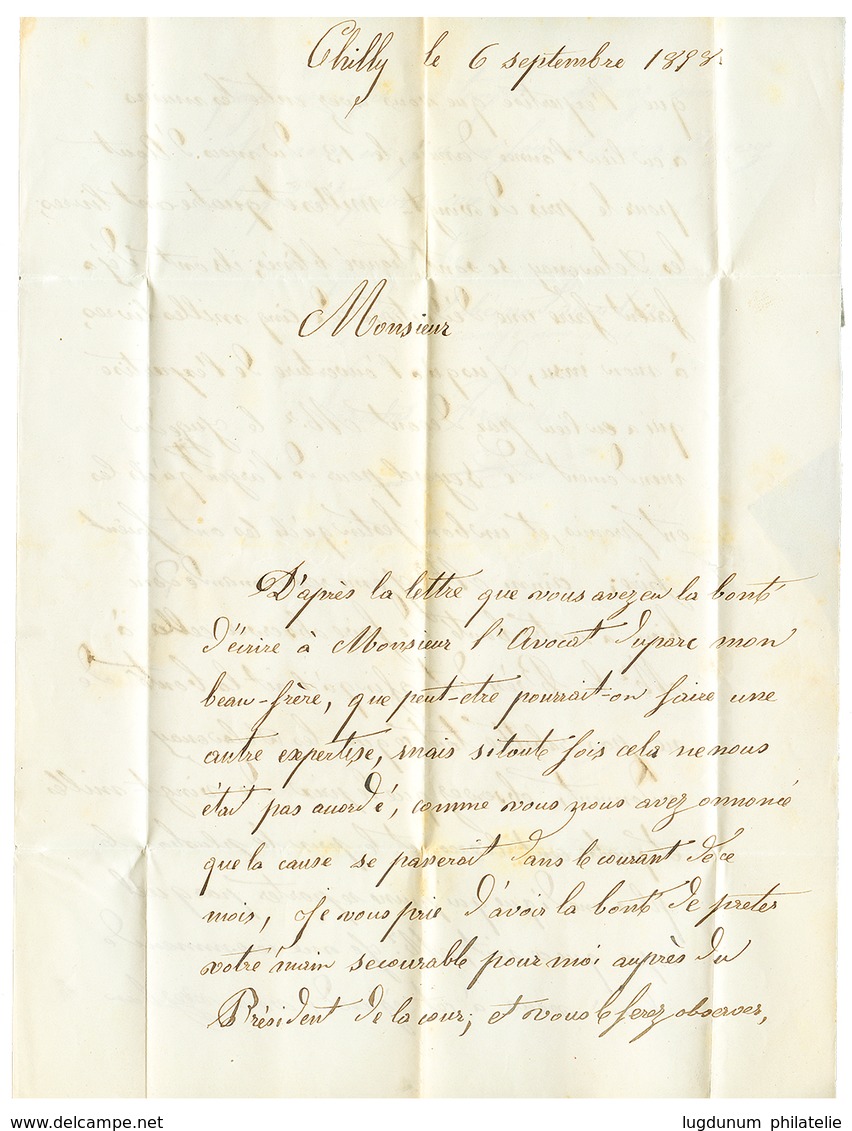 Chilly le 6 septembre 1898.
Monsieur
D'après la lettre que vous avez eu la bonté
d'écrire à Monsieur l'Avocat Duparc mon
beau-frère, que peut-etre pourrait-on faire une
autre expertise, mais si toute fois cela ne nous
était pas accordé, comme vous nous avez annoncé
que la cause se passerait dans le courant de ce
mois, Je vous prie d'avoir la bonté de preter
votre main secourable pour moi auprès du
Président de la cour; et vous le ferez observer,
lugdunum philatelie